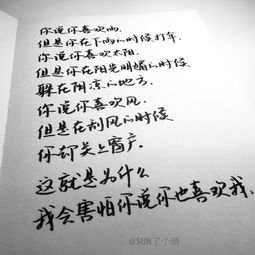 你说你喜欢雨,
但是你在下雨的时候打伞.
你说你喜欢太阳,
但是你在阳光明媚的时候
躲在阴凉的地方.
你说你喜欢风.
但是在刮风的时候
你却关上窗户.
这就是为什么
我会害怕你说你也喜欢我.
@SUN了个晒